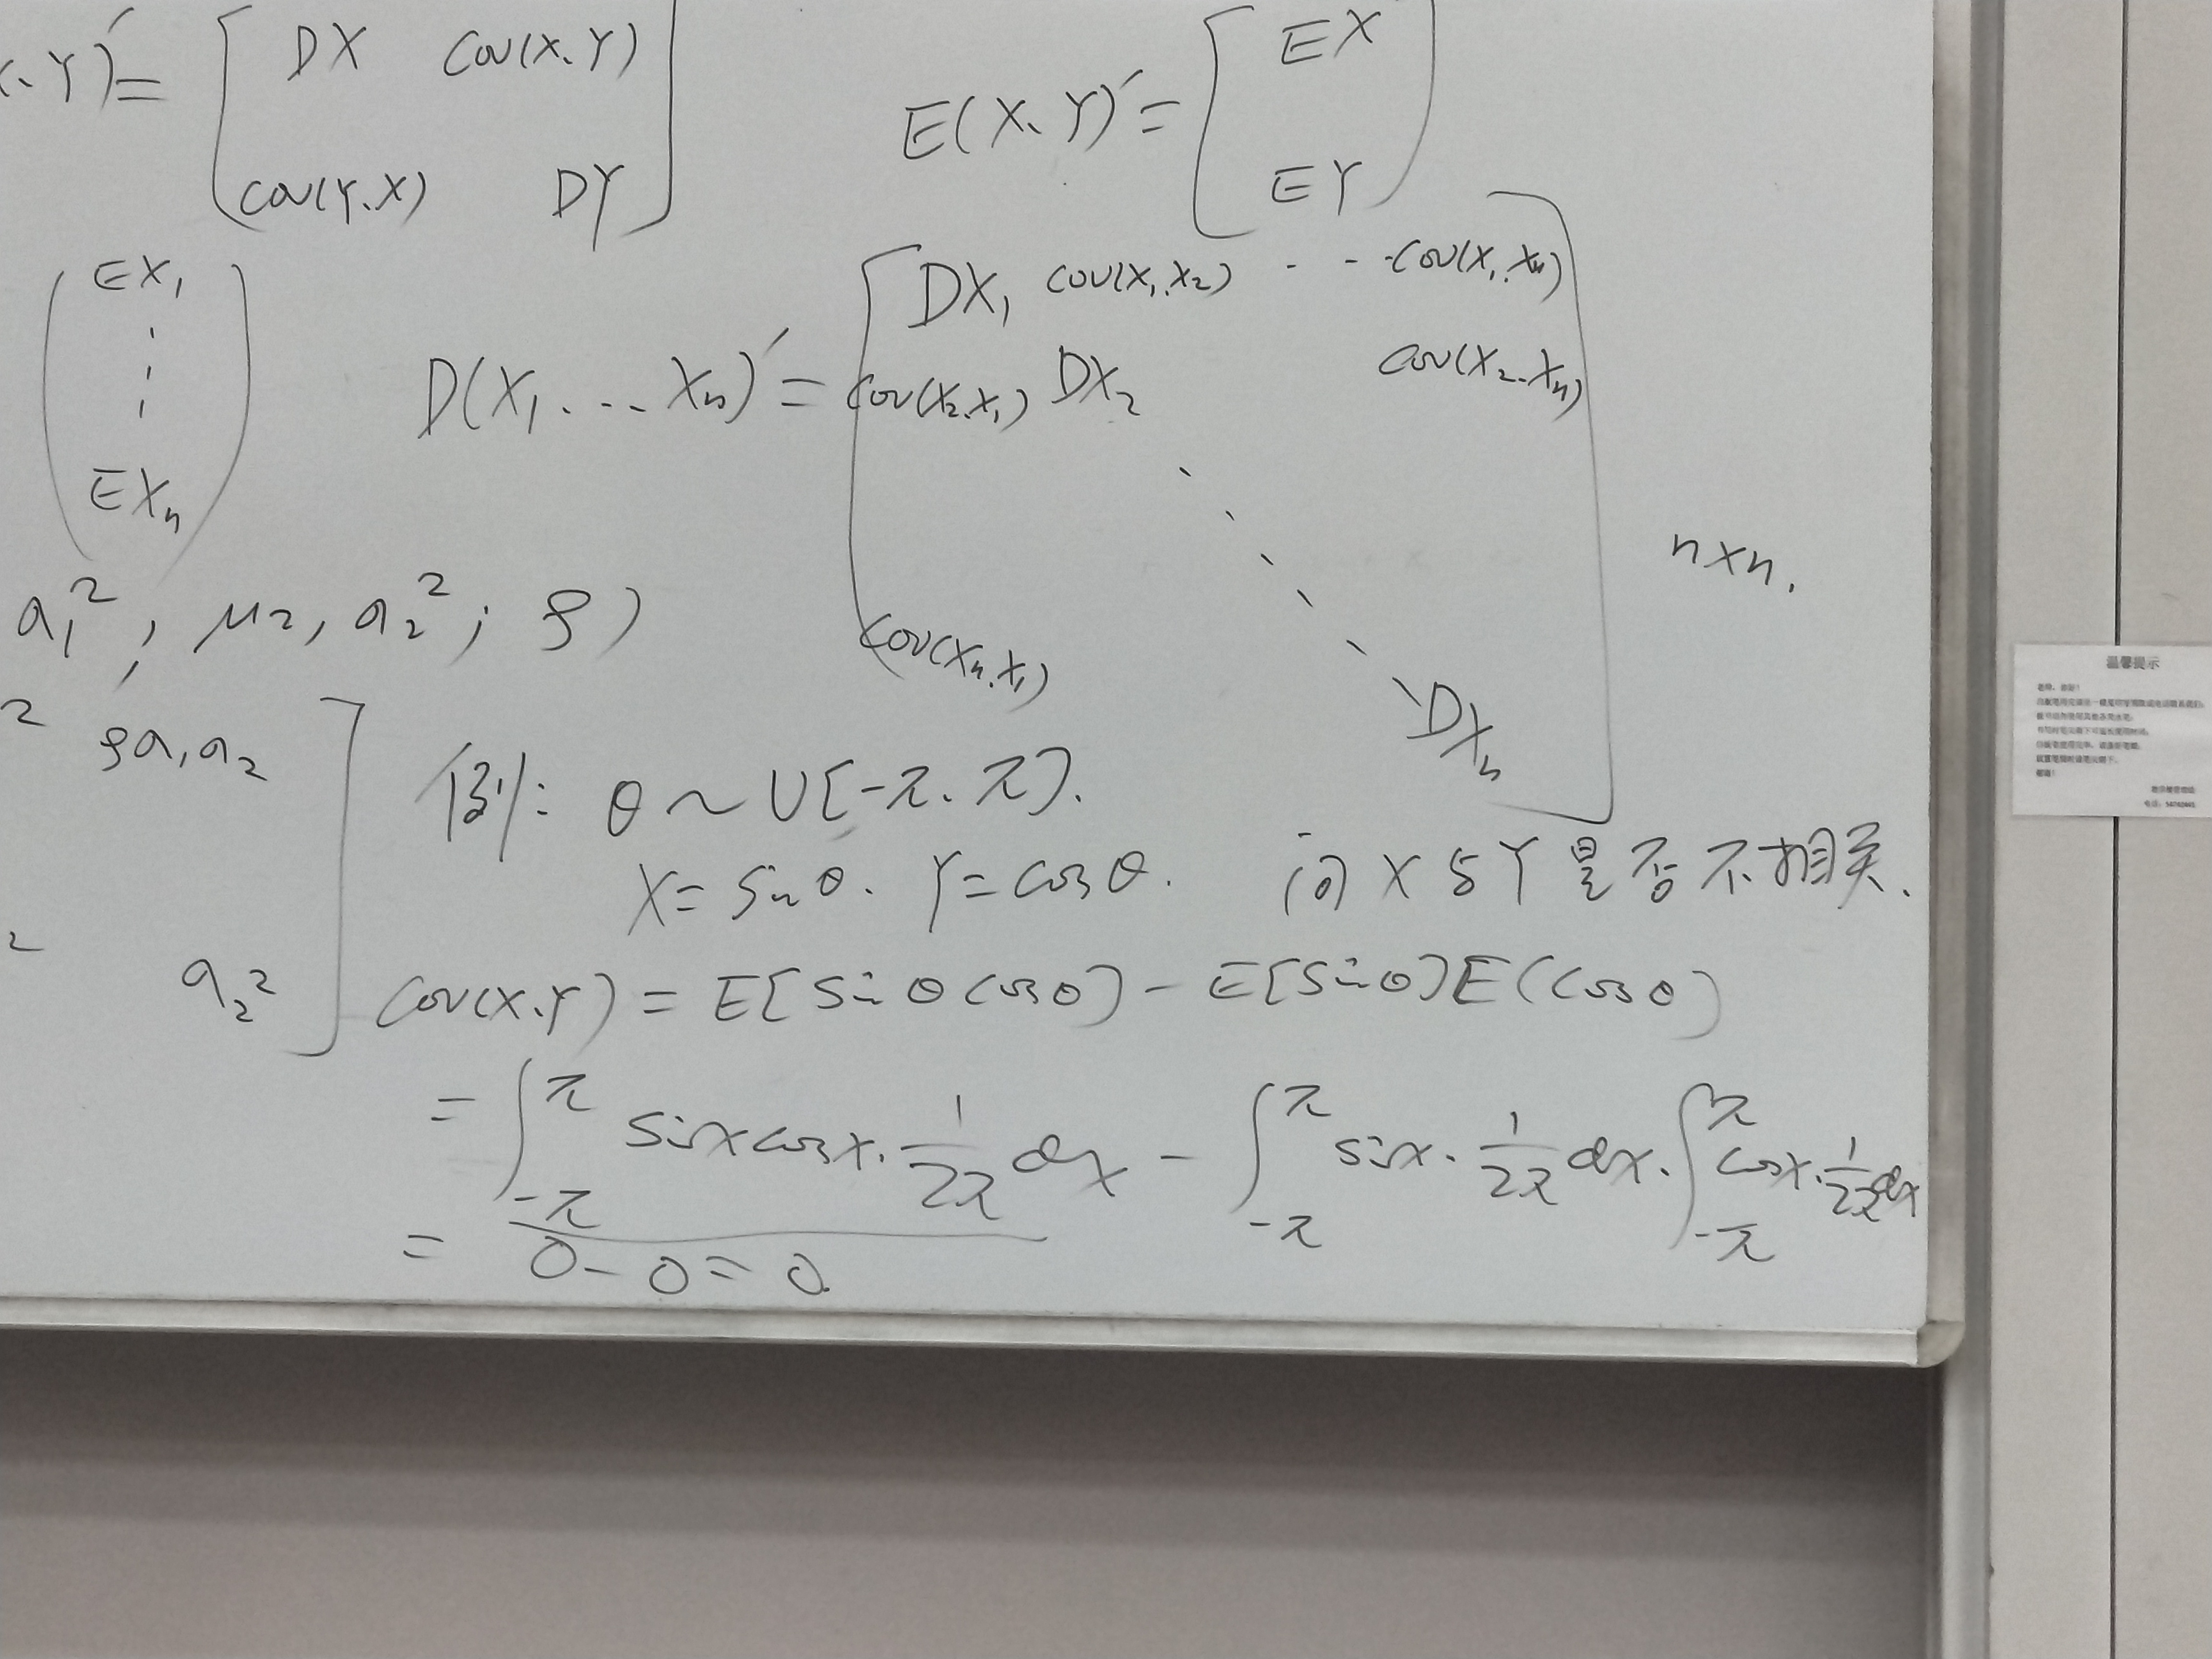 X、Y)′= [ DX cov(X、Y)
cov(Y、X) DY ]
E(X、Y)′= [ EX
EY ]
( EX₁
⋮
EXₙ )
D(X₁、… Xₙ)′= [ DX₁ cov(X₁、X₂) - - - cov(X₁、Xₙ)
cov(X₂、X₁) DX₂ cov(X₂、Xₙ)
⋱
cov(Xₙ、X₁) DXₙ ] n×n.
σ₁², μ₂, σ₂²; ρ)
² ρσ₁σ₂
² σ₂² ]
例: θ ~ U[-π、π].
X = sinθ. Y = cosθ. 问 X 与 Y 是否不相关.
cov(X、Y) = E[sinθcosθ] - E[sinθ]E(cosθ)
= ∫_{-π}^{π} sinxcosx·1/2π dx - ∫_{-π}^{π} sinx·1/2π dx·∫_{-π}^{π} cosx·1/2π dx
= 0 - 0 = 0.
温馨提示